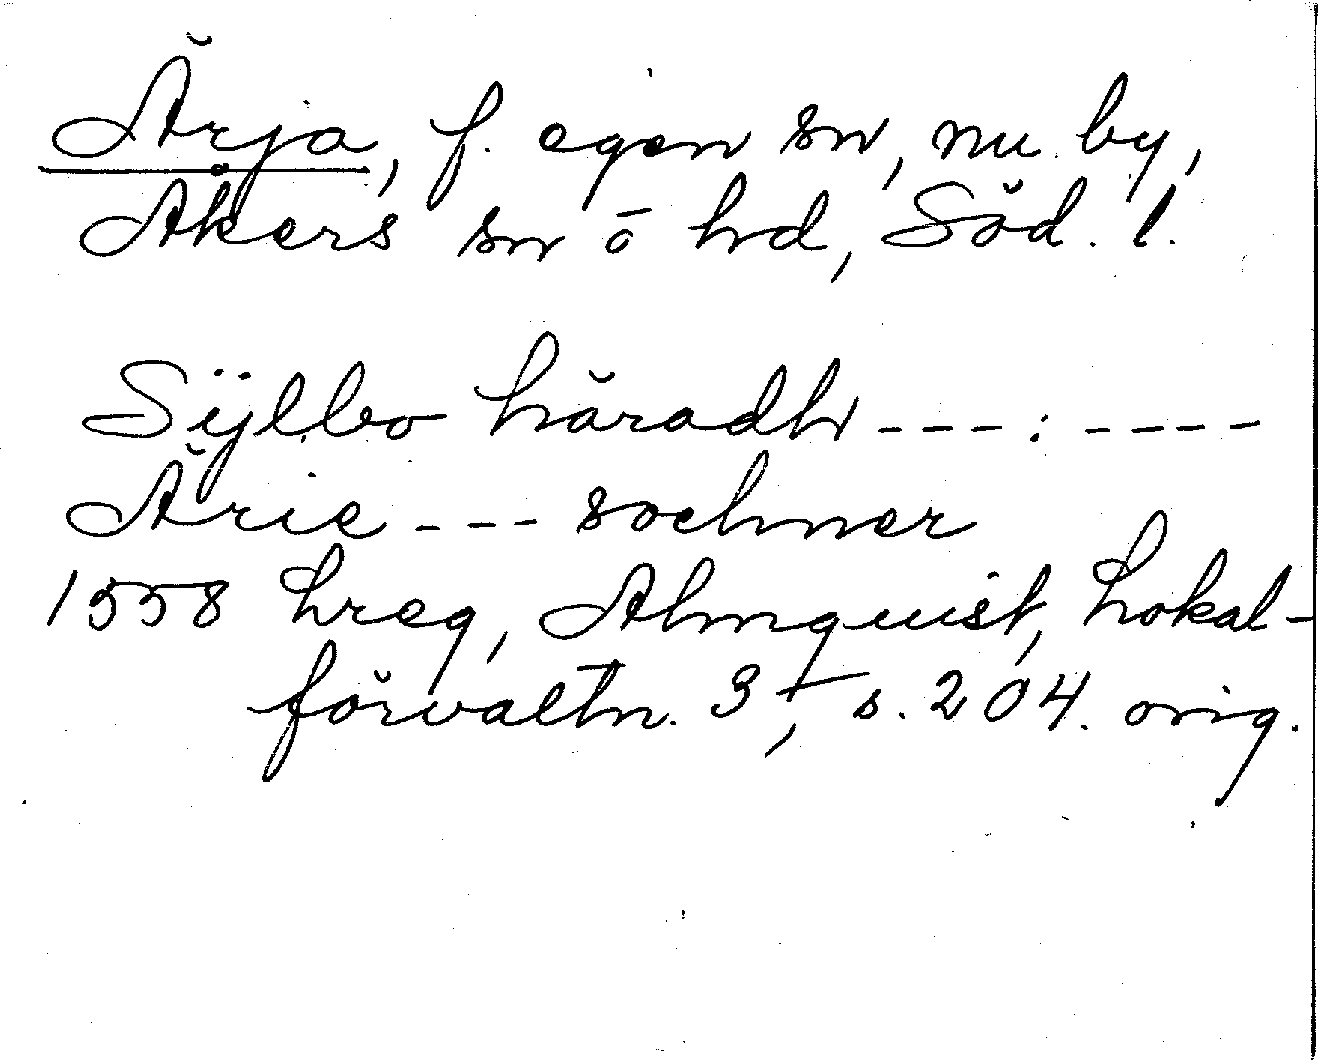 Ärja, f. egen sn, nu by,
Åkers sn o hd, Söd. l.
Sÿlbo häradh ---:----
Ärie --- sochner
1558 hreg, Almquist, Lokal-
förvaltn. 3, s. 204. orig.